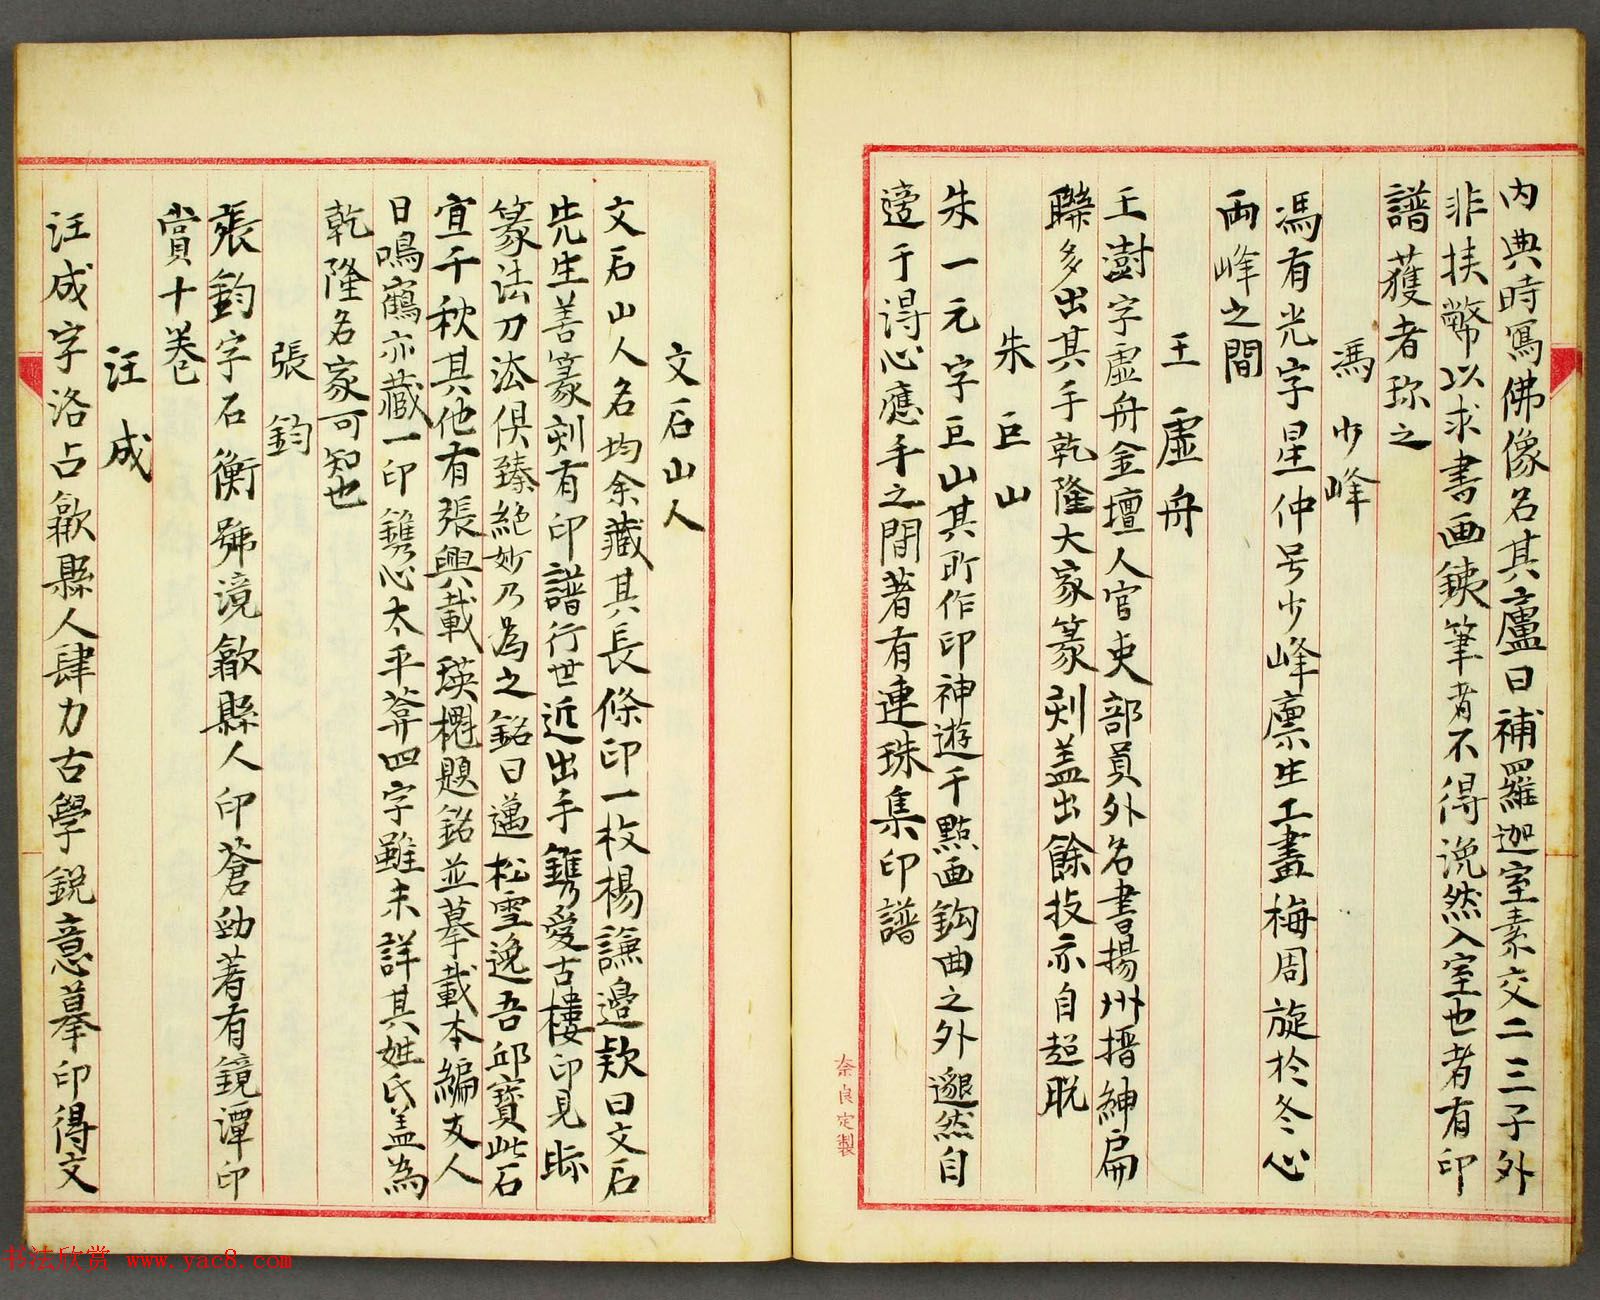 內典時寫佛像名其廬曰補羅迦室素交二三子外
非挾幣以求書画鐵筆者不得浼然入室也者有印
譜獲者珎之
馮少峰
馮有光字星仲号少峰廪生工畫梅周旋於冬心
両峰之間
王虛舟
王澍字虛舟金壇人官吏部員外名書揚州搢紳扁
聯多出其手乾隆大家篆刻盖出餘技亦自超脱
朱巨山
朱一元字巨山其所作印神遊于點画鈎曲之外邈然自
適于得心應手之間著有連珠集印譜
奈良定製
文石山人
文石山人名均余藏其長條印一枚楊謙邊欵曰文石
先生善篆刻有印譜行世近出手鐫愛古樓印見眎
篆法刀法俱臻絕妙乃為之銘曰邁松雪逸吾邱寶此石
宜千秋其他有張興載瑛櫆題銘並摹載本編友人
日鳴鶴亦藏一印鐫心太平菴四字雖未詳其姓氏盖為
乾隆名家可知也
張鈞
張鈞字石衡號境歙縣人印蒼勁著有鏡潭印
賞十卷
汪成
汪成字洛占歙縣人肆力古學鋭意摹印得文
书法欣赏 www.yac8.com